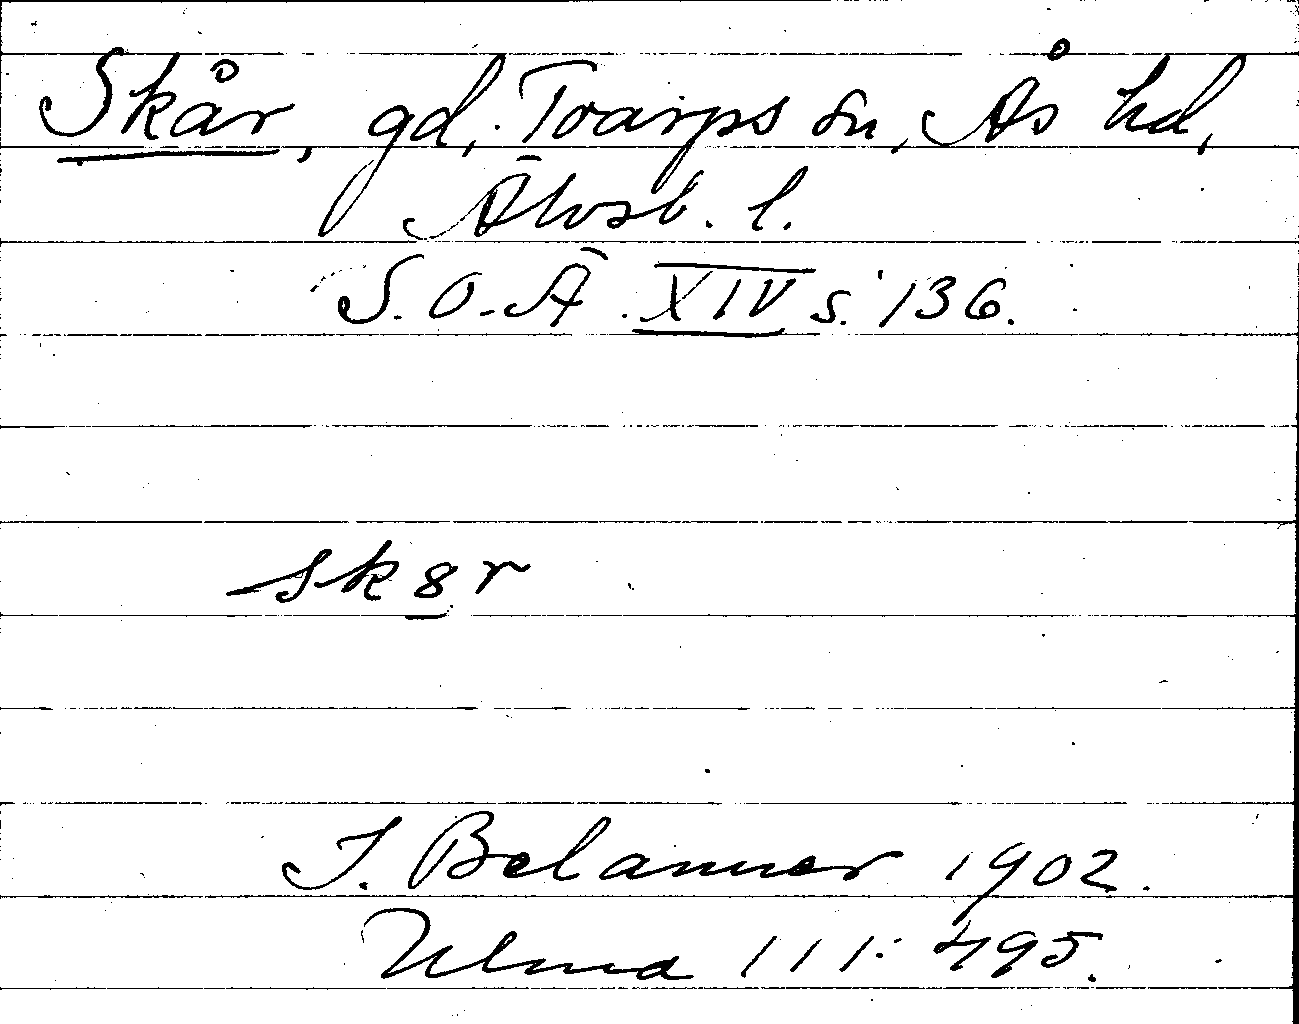 Skår, gd, Toarps sn, Ås hd,
Älvsb. l.
S.O.Ä. XIV s. 136.
sk8r
J. Belanner 1902.
Ulma 111:495.